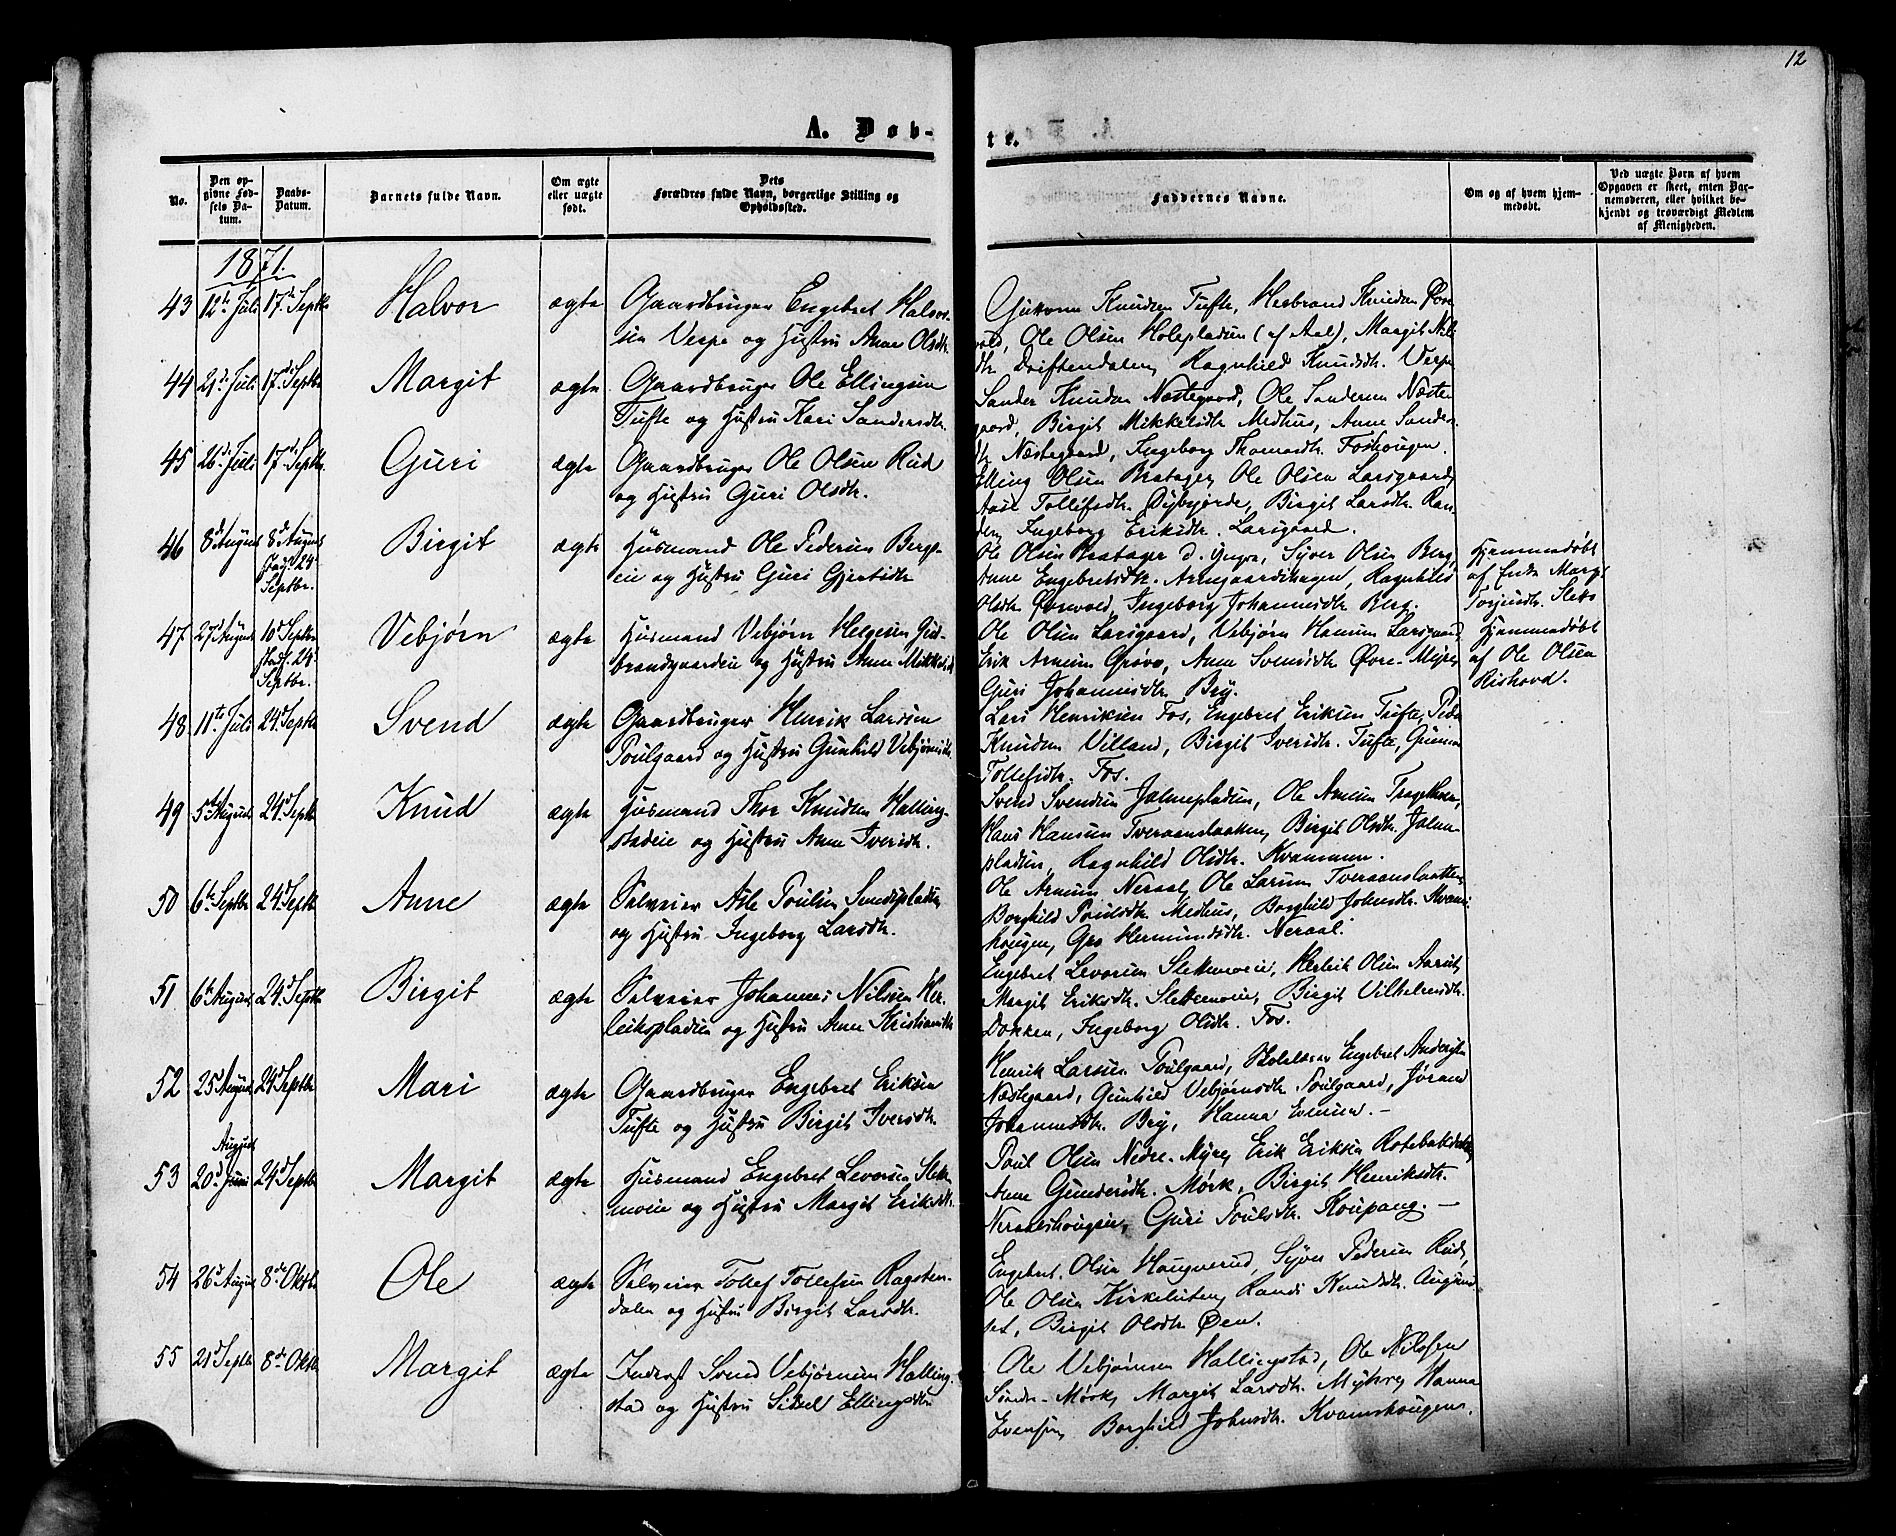 12
A. Døb-
te.
No.
Den op-
givne Fød-
sels Da-
tum.
Daabs-
Datum.
Barnets fulde Navn.
Om ægte
eller uægte
født.
Dets
Forældres fulde Navn, borgerlige Stilling og
Opholdssted.
Faddernes Navne.
Om og af hvem hjem-
medøbt.
Ved uægte Børn af hvem
Opgaven er skeet, enten Bar-
nemoderen, eller hvilket be-
kjendt og troværdigt Medlem
af Menigheden.
1871.
43 12te Juli 17de Septbr Halvor ægte Gaardbruger Engebret Halvor-
sen Vespe og Hustru Anne Olsdtr.
Guttorm Knudsen Tufte, Herbrand Knudsen
Ole Olsen Holepladsen (af Aal), Margit
Driftendalen, Ragnhild Knudsdtr. Vespe
44 21de Juli 17de Septbr Margit ægte Gaardbruger Ole Ellingsen
Tufte og Hustru Kari Sandersdtr.
Sander Knudsen Næstegaard, Ole Sandersen Næste-
gaard, Birgit Mikkelsdtr Medhus, Anne Sanders-
dtr Næstegaard, Ingeborg Thomasdtr. Foshougen.
45 26de Juli 17de Septbr Guri ægte Gaardbruger Ole Olsen Rud
og Hustru Guri Olsdtr.
Elling Olsen Bratager, Ole Olsen Larsgaard,
Aase Tollefsdtr. Dybjorde, Birgit Larsdtr. Ran-
den, Ingeborg Eriksdtr. Larsgaard.
46 8de August 8de August
Stadf. 24de
Septbr. Birgit ægte Husmand Ole Pedersen Berg-
eie og Hustru Guri Gjertsdtr
Ole Olsen Bratager d. yngre, Syver Olsen Berg,
Anne Engebretsdtr. Arnegaardshagen, Ragnhild
Olsdtr Ørevold, Ingeborg Johannesdtr Berg.
Hjemmedøbt
af Enke Margit
Torjusdtr. Sletto
47 27de August 10de Septbr
stadf. 24de
Septbr. Vebjørn ægte Husmand Vebjørn Helgesen Gul-
brandgaardeie og Hustru Anne Mikkelsdtr
Ole Olsen Larsgaard, Vebjørn Hansen Larsgaard,
Erik Arnesen Grøve, Anne Svensdtr Øvre-Myre,
Guri Johannesdtr. Bry.
Hjemmedøbt
af Ole Olsen
Rishovd.
48 11te Juli 24de Septbr Svend ægte Gaardbruger Henrik Larsen
Poulgaard og Hustru Gunhild Vebjørnsdtr.
Lars Henriksen Fos, Engebret Eriksen Tufte, Peder
Knudsen Villand, Birgit Iversdtr. Tufte,
Tollefsdtr. Fos.
49 5te August 24de Septbr Knud ægte Husmand Thor Knudsen Halling-
stadeie og Hustru Anne Iversdtr.
Svend Svendsen Jalmepladsen, Ole Arnesen
Hans Hansen Tveraanslaatten, Birgit Olsdtr. Jalme-
pladsen, Ragnhild Olsdtr. Kvammen.
50 6te Septbr 24de Septbr Anne ægte Selveier Asle Poulsen
og Hustru Ingeborg Larsdtr.
Ole Arnesen Neraal, Ole Larsen Tveraanslaatten,
Borghild Poulsdtr. Medhus, Borghild Johnsdtr. Kvams-
hougen, Gro Hermundsdtr. Neraal.
51 6te August 24de Septbr Birgit ægte Selveier Johannes Nilsen Her-
leikspladsen og Hustru Anne Kristiansdtr
Engebret Levorsen Slettemoeie, Herleik Olsen Aarset,
Margit Eriksdtr. Slettemoeie, Birgit Vilhelmsdtr.
Dokken, Ingeborg Olsdtr. Fos.
52 25de August 24de Septbr Mari ægte Gaardbruger Engebret Eriksen
Tufte og Hustru Birgit Iversdtr.
Henrik Larsen Poulgaard, Skolelærer Engebret Andersen
Næstegaard, Gunhild Vebjørnsdtr Poulgaard, Jørand
Johannesdtr. Bry, Hanna Evensen.
53 August
20de Juni 24de Septbr Margit ægte Husmand Engebret Levorsen Slette-
moeie og Hustru Margit Eriksdtr.
Poul Olsen Nedre-Myre, Erik Eriksen
Anne Gundersdtr. Mørk, Birgit Henriksdtr.
Neraalshougen, Guri Poulsdtr. Koupang.
54 26de August 8de Oktbr Ole ægte Selveier Tollef Tollefsen Ragsten-
dalen og Hustru Birgit Larsdtr.
Engebret Olsen Hougerud, Syver Pedersen Rud,
Ole Olsen Kirkesluten, Randi Knudsdtr. Augund-
set, Birgit Olsdtr Øen.
55 21de Septbr 8de Oktbr Margit ægte Inderst Svend Vebjørnsen Halling-
stad og Hustru Sidsel Ellingsdtr
Ole Vebjørnsen Hallingstad, Ole Nilssen
Søndre-Mørk, Margit Larsdtr. Myhre, Hanna
Evensen, Borghild Johnsdtr. Kvamshougen.